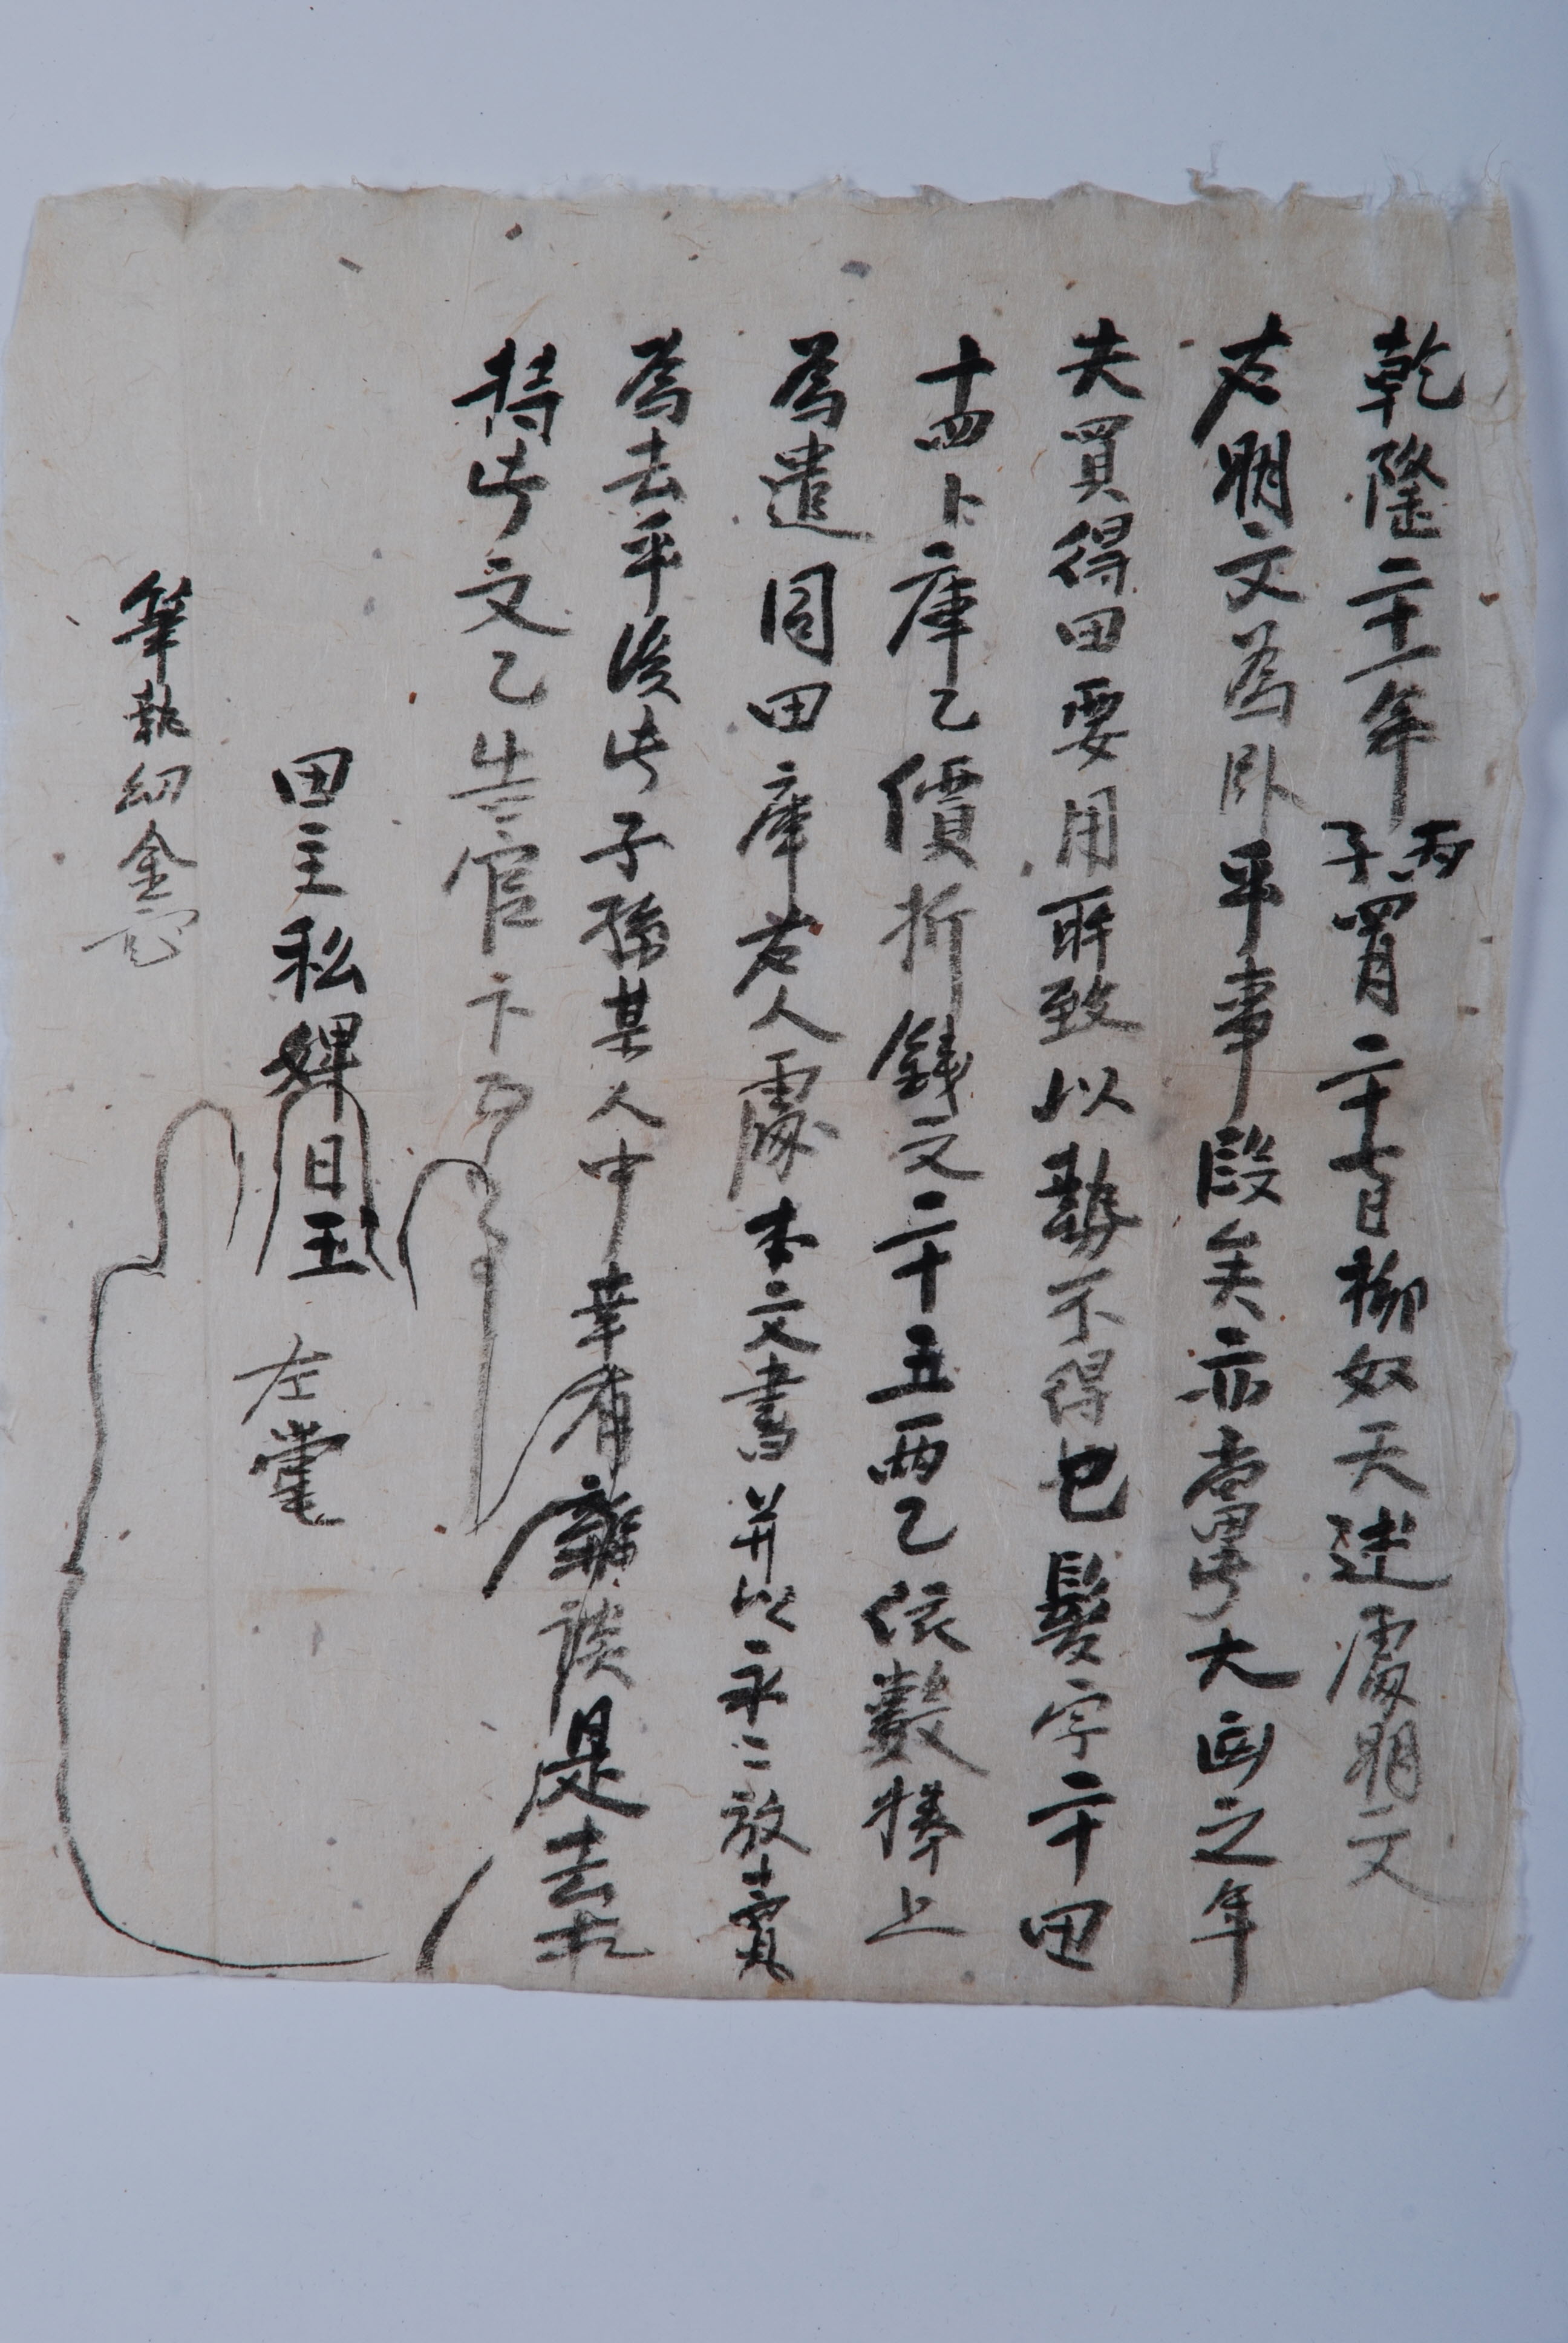 乾隆二十一年丙子四月二十七日柳奴天建處明文
右明文爲臥乎事段矣亦當此大凶之年
夫買得田要用所致以勢不得已髮字二十田
十四卜庫乙價折錢文二十五兩乙依數捧上
爲遣同田庫右人處本文書幷以永永放賣
爲去乎後此子孫某人中幸有雜談是去等
持此文乙告官卞正事
田主私婢日玉 左掌
筆執幼金